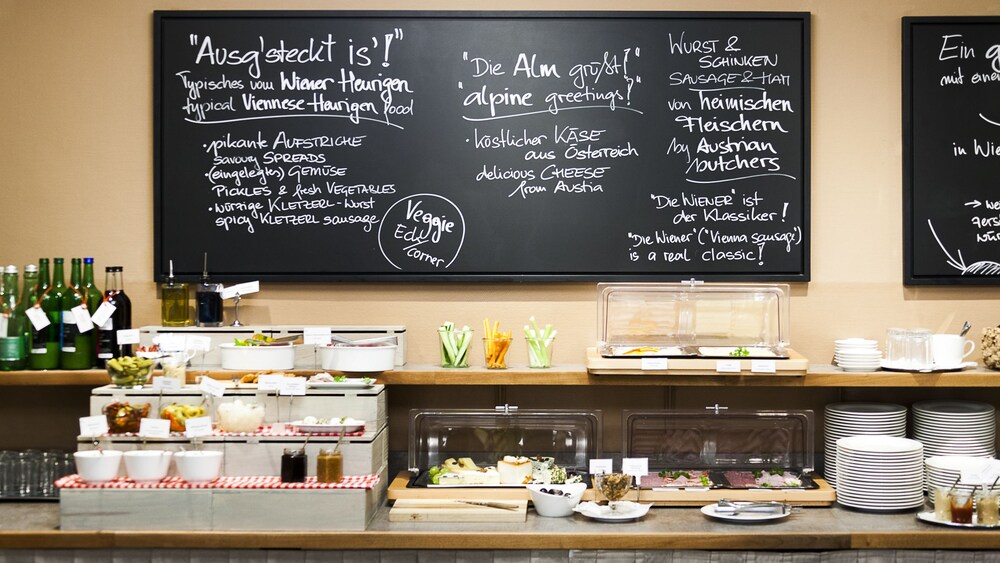 "Ausg'steckt is'!"
Typisches vom Wiener Heurigen
typical Viennese Heurigen food
• pikante AUFSTRICHE
savoury SPREADS
• (eingelegtes) GEMÜSE
PICKLES & fresh VEGETABLES
• würzige KLETZERL-Wurst
spicy KLETZERL sausage
Veggie
Eck/
corner
"Die Alm grüßt!"
"alpine greetings!"
• köstlicher KÄSE
aus Österreich
delicious CHEESE
from Austia
WURST &
SCHINKEN
SAUSAGE & HAM
von heimischen
Fleischern
by Austrian
butchers
"Die WIENER" ist
der Klassiker!
"Die Wiener" ("Vienna sausage")
is a real classic!
Ein
mit eine
in Wie